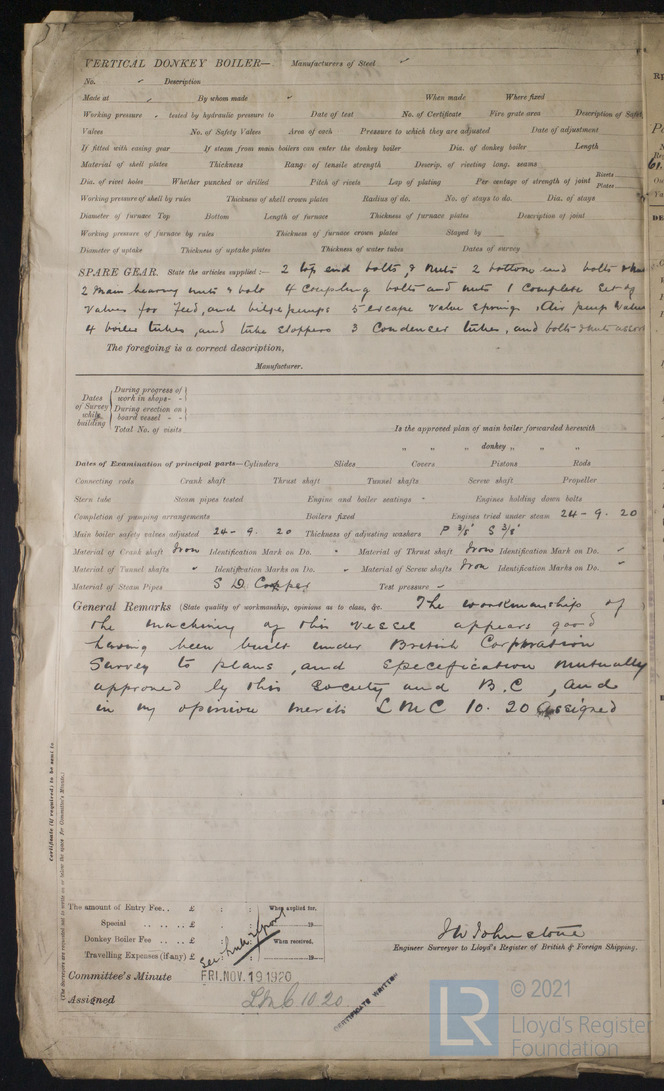 VERTICAL DONKEY BOILER— Manufacturers of Steel
No. Description
Made at By whom made When made Where fixed
Working pressure tested by hydraulic pressure to Date of test No. of Certificate Fire grate area Description of Safety
Valves No. of Safety Valves Area of each Pressure to which they are adjusted Date of adjustment
If fitted with easing gear If steam from main boilers can enter the donkey boiler Dia. of donkey boiler Length
Material of shell plates Thickness Range of tensile strength Descrip. of riveting long. seams
Dia. of rivet holes Whether punched or drilled Pitch of rivets Lap of plating Per centage of strength of joint Rivets Plates
Working pressure of shell by rules Thickness of shell crown plates Radius of do. No. of stays to do. Dia. of stays
Diameter of furnace Top Bottom Length of furnace Thickness of furnace plates Description of joint
Working pressure of furnace by rules Thickness of furnace crown plates Stayed by
Diameter of uptake Thickness of uptake plates Thickness of water tubes Dates of survey
SPARE GEAR. State the articles supplied :— 2 top end bolts & nuts 2 bottom end bolts & nuts
2 Main bearing nuts & bolt 4 coupling bolts and nuts 1 Complete set of
Valves for feed, and bilge pumps 5 escape value springs, Air pump Valves
4 boiler tubes, and tube stoppers 3 Condenser tubes, and bolts & nuts assort
The foregoing is a correct description,
Manufacturer.
Dates of Survey while building
During progress of work in shops - -
During erection on board vessel - -
Total No. of visits
Is the approved plan of main boiler forwarded herewith
„ „ „ donkey „ „ „
Dates of Examination of principal parts—Cylinders Slides Covers Pistons Rods
Connecting rods Crank shaft Thrust shaft Tunnel shafts Screw shaft Propeller
Stern tube Steam pipes tested Engine and boiler seatings Engines holding down bolts
Completion of pumping arrangements Boilers fixed Engines tried under steam 24 - 9. 20
Main boiler safety valves adjusted 24 - 9. 20 Thickness of adjusting washers P 3/8" S 3/8"
Material of Crank shaft Iron Identification Mark on Do. Material of Thrust shaft Iron Identification Mark on Do.
Material of Tunnel shafts Identification Marks on Do. Material of Screw shafts Iron Identification Marks on Do.
Material of Steam Pipes S D Copper Test pressure
General Remarks (State quality of workmanship, opinions as to class, &c. The workmanship of
the machinery of this vessel appears good
having been built under British Corporation
Survey to plans, and specification mutually
approved by this Society and B.C, and
in my opinion merits LMC 10. 20 assigned
Certificate (if required) to be sent to
(The Surveyors are requested not to write on or below the space for Committee's Minute.)
The amount of Entry Fee.. £ : : When applied for,
Special .. .. .. £ : : 19
Donkey Boiler Fee .. .. .. £ : : When received,
Travelling Expenses (if any) £ : : 19
See hull report
J W Johnstone
Engineer Surveyor to Lloyd's Register of British & Foreign Shipping.
Committee's Minute FRI. NOV. 19 1920
Assigned LMC 10.20
CERTIFICATE WRITTEN
LR
© 2021
Lloyd's Register
Foundation